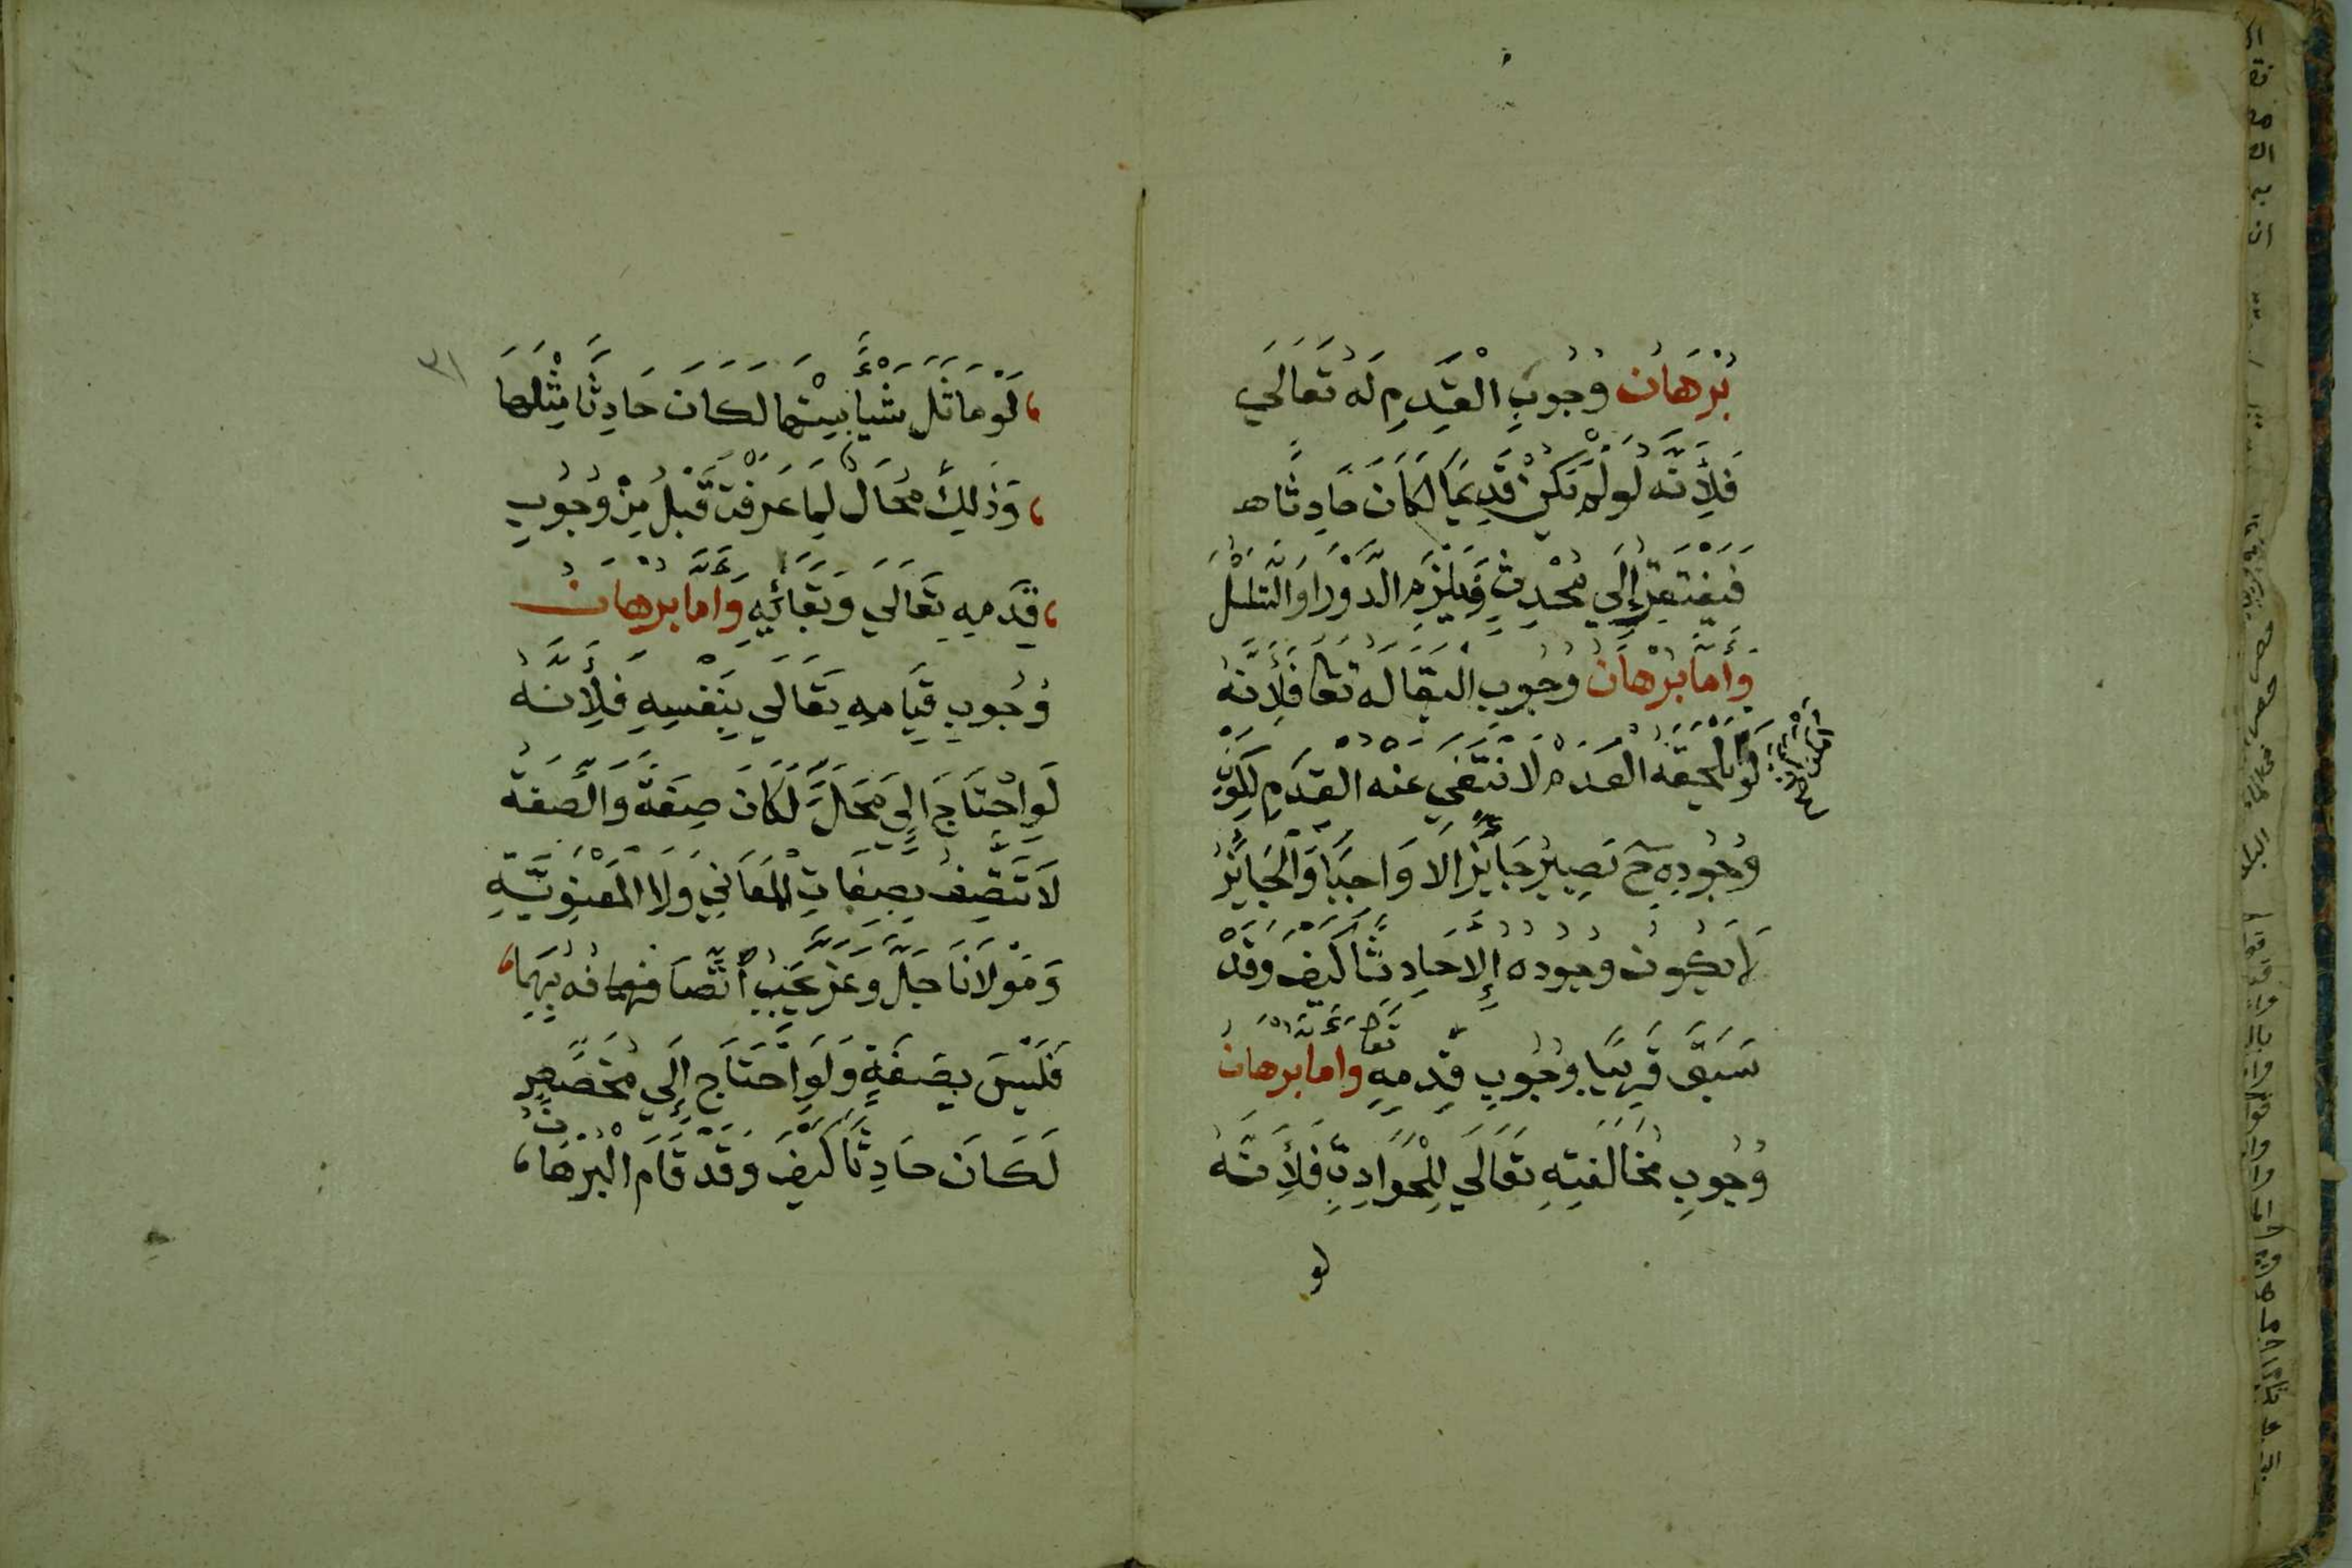 بُرْهَانُ وُجُوبِ الْقِدَمِ لَهُ تَعَالَي
فَلِأَنَّهُ لَوْ لَمْ يَكُنْ قَدِيمًا لَكَانَ حَادِثًا
فَيَفْتَقِرُ إِلَي مُحْدِثٍ فَيَلْزَمُ الدَّوْرُ اوَ التَّسَلْسُلُ
وَأَمَّا بُرْهَانُ وُجُوبِ الْبَقَا لَهُ تعا فَلِأَنَّهُ
لَوْ يَلْحَقُهُ الْعَدَمُ لَانْتَفَي عَنْهُ الْقِدَمُ لِكَوْنِ
أَمْكَنَ أن
وُجُودِهِ ح يَصِيرُ جَائِزًا لَا وَاجِبًا وَالْجَائِزُ
لَا يَكُونُ وُجُودُهُ إِلَّا حَادِثًا كَيْفَ وَقَدْ
سَبَقَ قَرِيبًا وُجُوبُ قِدَمِهِ تعا وَأَمَّا بُرْهَانُ
وُجُوبِ مُخَالَفَتِهِ تَعَالَي لِلْحَوَادِثِ فَلِأَنَّهُ
لو
٣١
لَوْ مَاثَلَ شَيْأً مِنْهَا لَكَانَ حَادِثًا مِثْلَهَا
وَذٰلِكَ مُحَالٌ لِمَا عَرَفْتَ قَبْلُ مِنْ وُجُوبِ
قِدَمِهِ تَعَالَي وَبَقَائِهِ وَأَمَّا بُرْهَانُ
وُجُوبِ قِيَامِهِ تَعَالَي بِنَفْسِهِ فَلِأَنَّهُ
لَوِ احْتَاجَ الَي مَحَلٍّ لَكَانَ صِفَةً وَالصِّفَةُ
لَا تَتَّصِفُ بِصِفَاتِ الْمَعَانِي وَلَا الْمَعْنَوِيَّةِ
وَمَوْلَانَا جَلَّ وَعَزَّ يَجِبُ اتِّصَافُهُ بِهِمَا
فَلَيْسَ بِصِفَةٍ وَلَوِ احْتَاجَ إِلَي مُخَصِّصٍ
لَكَانَ حَادِثًا كَيْفَ وَقَدْ قَامَ الْبُرْهَانُ